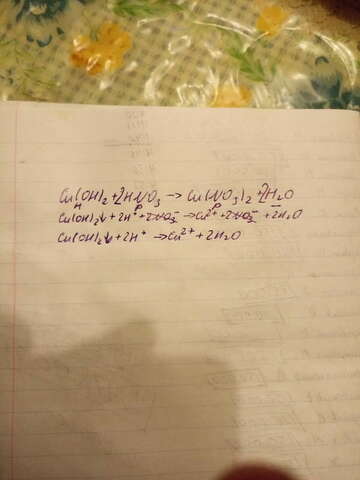 Cu(OH)₂ + 2HNO₃ → Cu(NO₃)₂ + 2H₂O
Н Р Р —
Cu(OH)₂↓ + 2H⁺ + 2NO₃⁻ → Cu²⁺ + 2NO₃⁻ + 2H₂O
Cu(OH)₂↓ + 2H⁺ → Cu²⁺ + 2H₂O